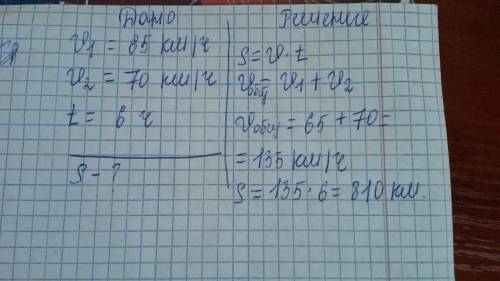 Дано
υ1 = 65 км/ч
υ2 = 70 км/ч
t = 6 ч
S - ?
Решение
S = υ · t
υобщ = υ1 + υ2
υобщ = 65 + 70 =
= 135 км/ч
S = 135 · 6 = 810 км.